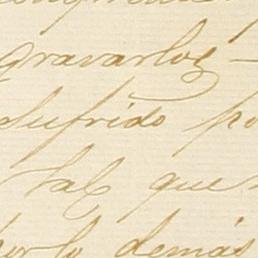 gravarlos
sufrido po
tal que
por lo demás